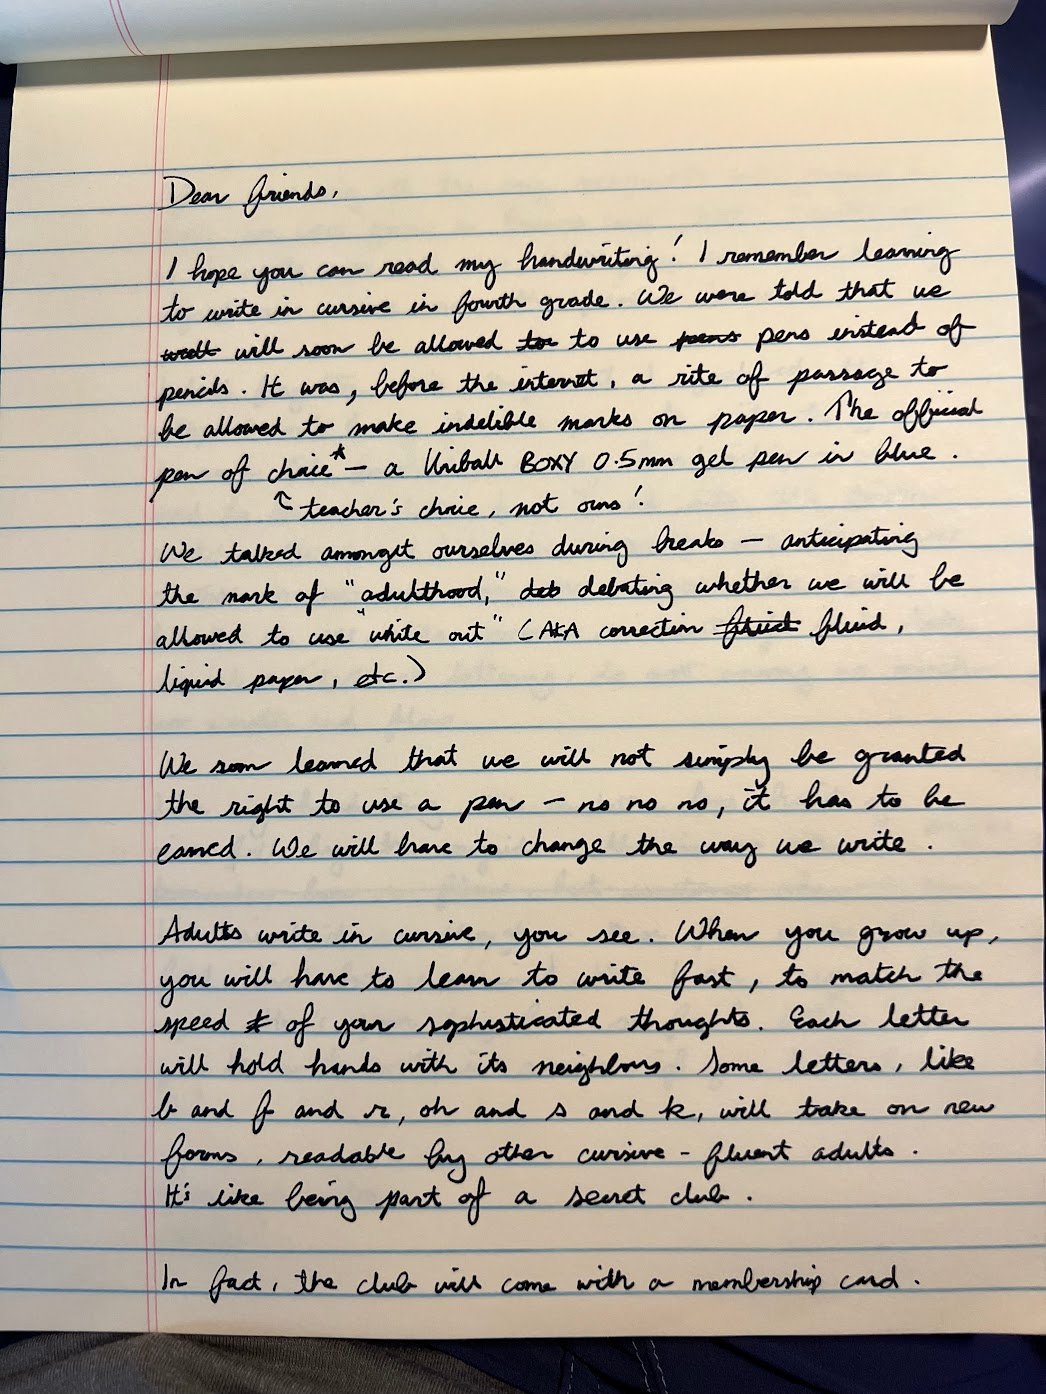 Dear friends,
I hope you can read my handwriting! I remember learning
to write in cursive in fourth grade. We were told that we
will soon be allowed to use pens instead of
pencils. It was, before the internet, a rite of passage to
be allowed to make indelible marks on paper. The official
pen of choice* — a Uniball BOXY 0.5mm gel pen in blue.
teacher's choice, not ours!
We talked amongst ourselves during breaks — anticipating
the mark of "adulthood," deb debating whether we will be
allowed to use "white out" (AKA correction fluid fluid,
liquid paper, etc.)
We soon learned that we will not simply be granted
the right to use a pen — no no no, it has to be
earned. We will have to change the way we write.
Adults write in cursive, you see. When you grow up,
you will have to learn to write fast, to match the
speed of your sophisticated thoughts. Each letter
will hold hands with its neighbors. Some letters, like
b and f and r, oh and s and k, will take on new
forms, readable by other cursive-fluent adults.
It's like being part of a secret club.
In fact, the club will come with a membership card.